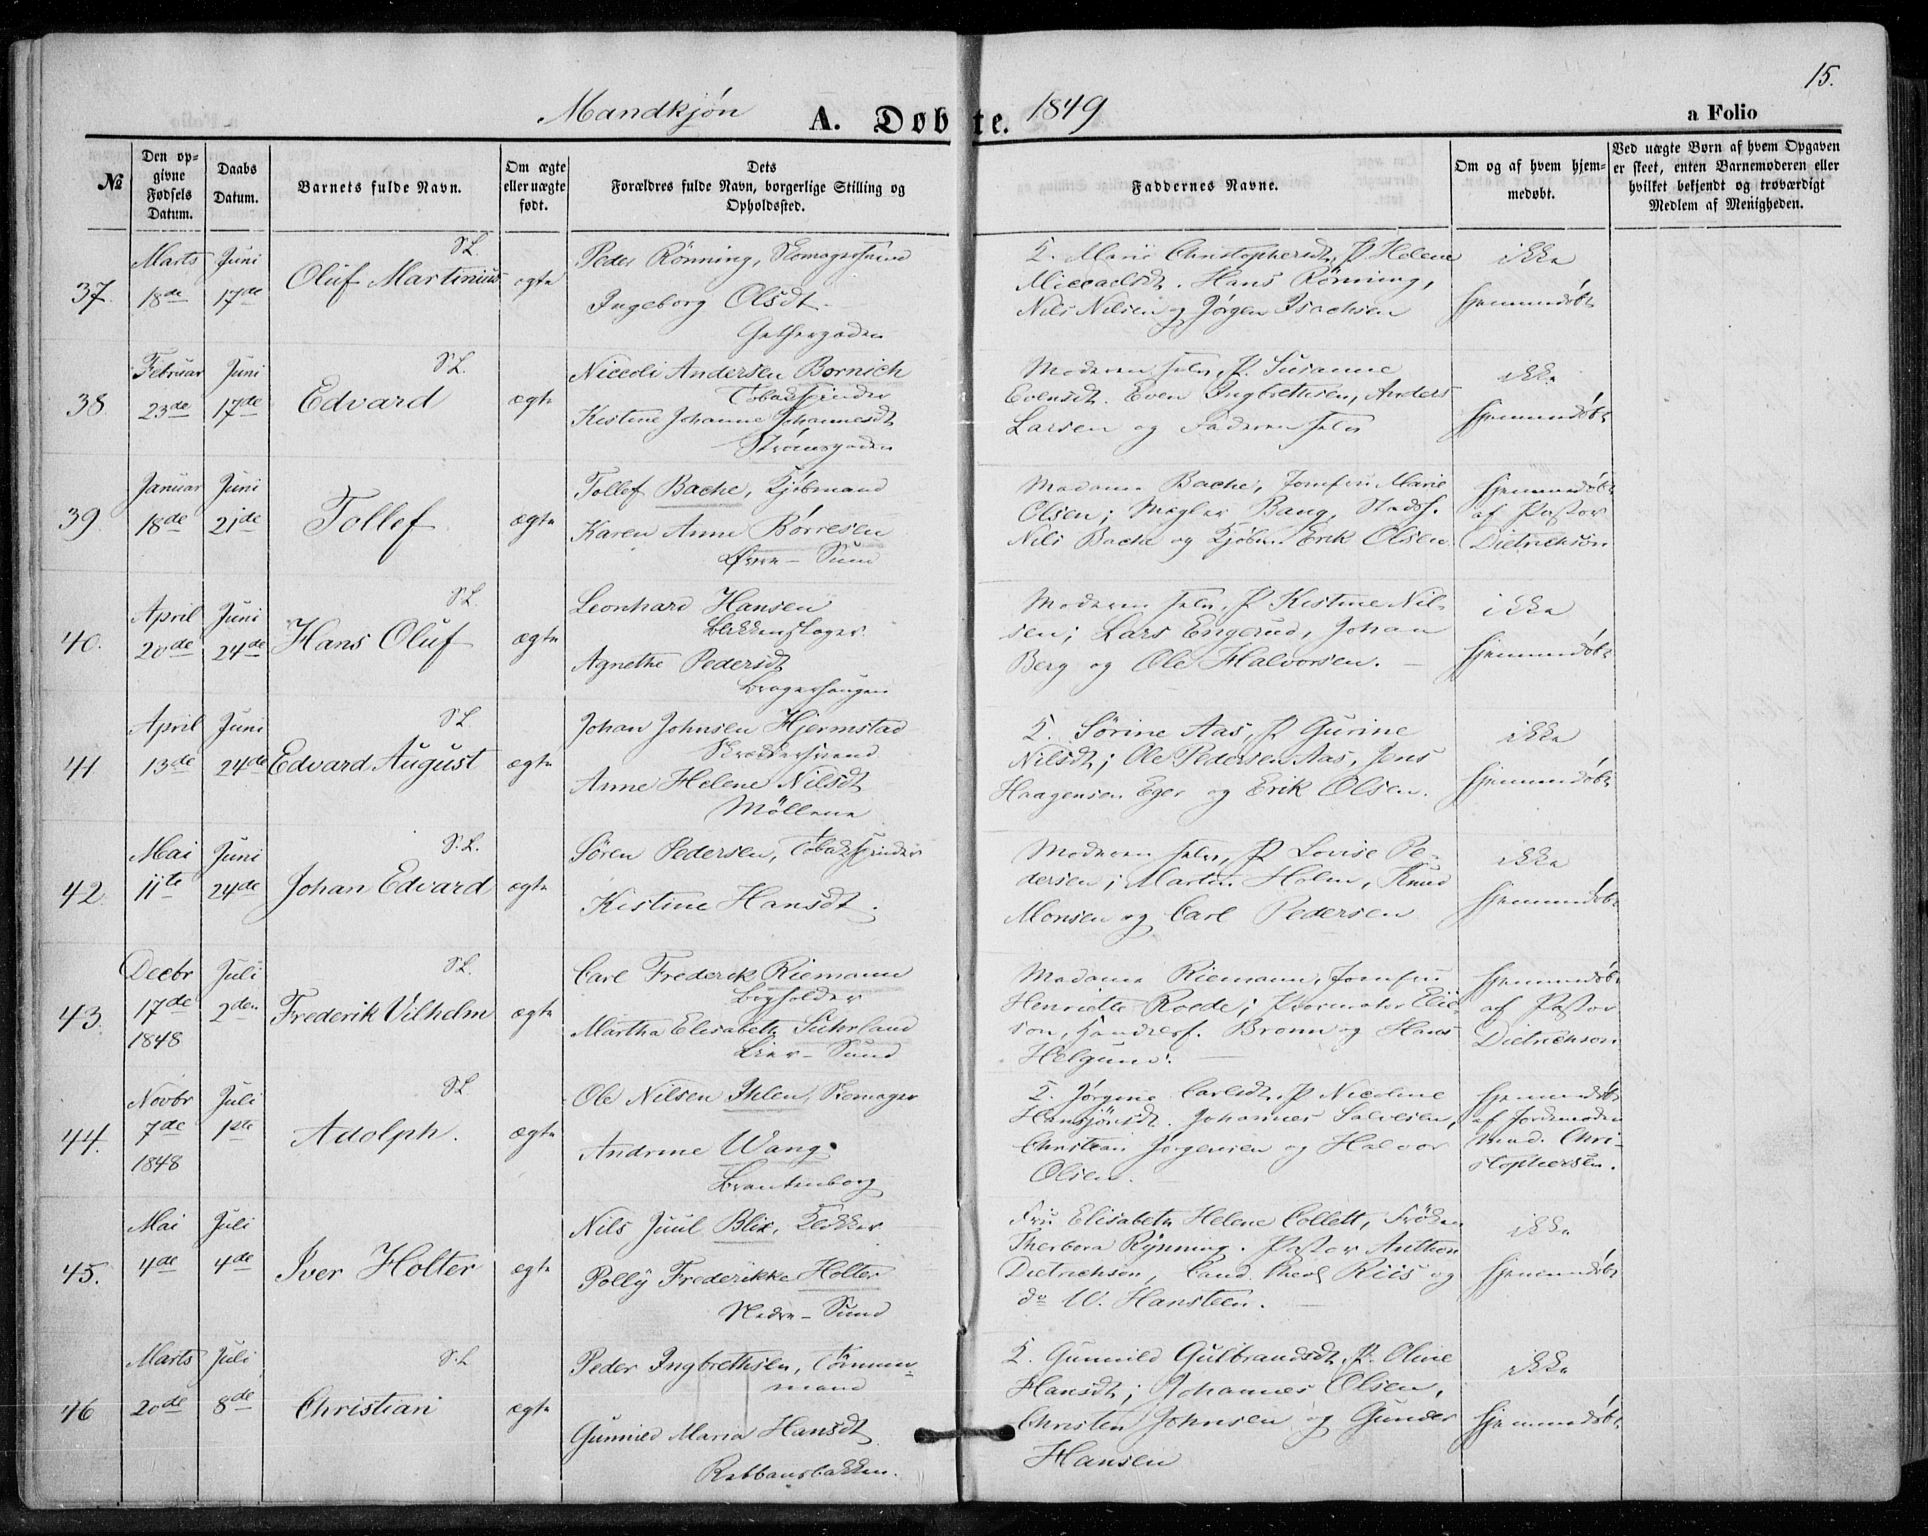 15.
Mandkjøn A. Døbte. 1849 a Folio
№
Den opgivne Fødsels Datum.
Daabs Datum.
Barnets fulde Navn.
Om ægte eller uægte født.
Dets Forældres fulde Navn, borgerlige Stilling og Opholdssted.
Faddernes Navne.
Om og af hvem hjemmedøbt.
Ved uægte Børn af hvem Opgaven er skeet, enten Barnemoderen eller hvilket bekjendt og troværdigt Medlem af Menigheden.
37. Marts 18de
Juni 17de
S.L. Oluf Martinius
ægte
Peder Rönning, Skomagersvend
Ingeborg Olsdt.
Gethergaden
K. Marie Christophersdt, P Helene
Miccaelsdt. Hans Rönning,
Nils Nilsen og Jørgen Isachsen
ikke
hjemmedøbt
38 Februar 23de
Juni 17de
S.L. Edvard
ægte
Niccoli Andersen Bornich
Tobakspinder
Kistine Johanne Johannesdt
Strömsgaden
Moderen selv, P. Susanne
Evensdt. Even Ingbrethsen, Anders
Larsen og Faderen selv
ikke
hjemmedøbt
39. Januar 18de
Juni 21de
Tollef
ægte
Tollef Bache, Kjøbmand
Karen Anne Børresen
Øvre-Sund
Madame Bache, Jomfru Marie
Olsen; Mægler Bang, Stadsh.
Nils Bache og Kjøbm. Erik Olsen
hjemmedøbt
af Pastor
Dietrichson
40. April 20de
Juni 24de
S.L. Hans Oluf
ægte
Leonhard Hansen
Blikkenslager
Agnethe Pedersdt
Bragerhaugen
Moderen selv, P Kistine Nil-
sen; Lars Engerud, Johan
Berg og Ole Halvorsen.
ikke
hjemmedøbt
41 April 13de
Juni 24de
S.L. Edvard August
ægte
Johan Johnsen Hjermstad
Skræddersvend
Anne Helene Nilsdt
Möllene
K. Sørine Aas, P Gurine
Nilsdt; Ole Pedersen Aas, Jens
Haagensen Eger og Erik Olsen.
ikke
hjemmedøbt
42. Mai 11te
Juni 24de
S.L. Johan Edvard
ægte
Søren Pedersen, Tobakspinder
Kistine Hansdt.
Moderen selv, P Lovise Pe-
dersen; Martin Holm, Knud
Monsen og Carl Pedersen
ikke
hjemmedøbt
43. Decbr 17de 1848
Juli 2den
S.L. Frederik Vilhelm
ægte
Carl Frederik Riemann
Bogholder
Martha Elisabeth Suhrland
Lier-Sund
Madame Riemann, Jomfru
Henriette Rode; Procurator Elie-
son, Handelsf. Bronn og Hans
Helgum.
hjemmedøbt
af Pastor
Dietrichson
44. Novbr 7de 1848
Juli 1ste
S.L. Adolph.
ægte
Ole Nilsen Ihlen, Skomager
Andrine Wang.
Brantenborg
K. Jørgine Carlsdt, P Nicoline
Hansjönsdt. Johannes Salvesen,
Christian Jørgensen og Halvor
Olsen.
hjemmedøbt
af Jordmoder
Mad. Chri-
stophersen.
45. Mai 4de
Juli 4de
Iver Holter
ægte
Nils Juul Blix, Klokker
Polly Frederikke Holter
Nedre-Sund
Fru Elisabeth Helene Collett, Frøken
Therbora Rynning. Pastor Anthon
Dietrichson, Cand. theol Riis og
do W. Hansteen.
ikke
hjemmedøbt
46 Marts 20de
Juli 8de
S.L. Christian
ægte
Peder Ingbrethsen, Tömmer-
mand
Gunnild Maria Hansdt
Rabbansbakken.
K. Gunnild Gulbrandsdt, P. Oline
Hansdt; Johannes Olsen,
Christen Johnsen og Gunder
Hansen
ikke
hjemmedøbt